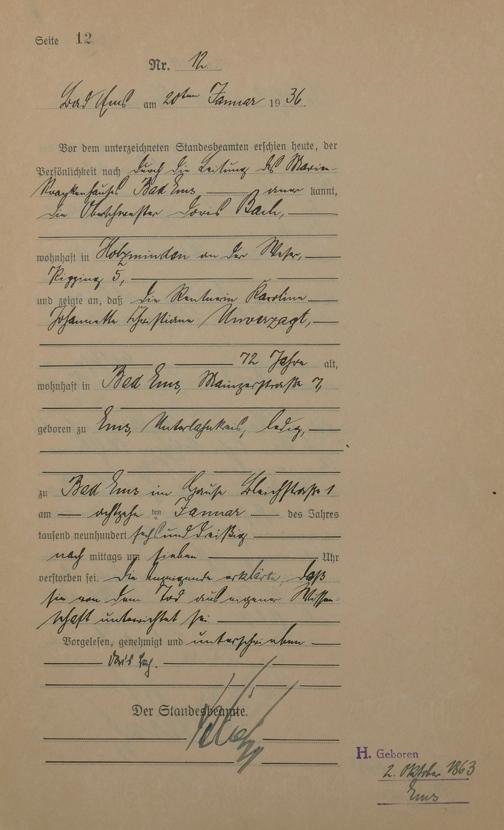 Seite 12
Nr. 12
Bad Ems am 20ten Januar 1936.
Vor dem unterzeichneten Standesbeamten erschien heute, der
Persönlichkeit nach durch die Leitung des Marien-
krankenhauses Bad Ems anerkannt,
die Oberschwester Doris Bach,
wohnhaft in Holzminden an der Weser,
5,
und zeigte an, daß die Rentnerin Karoline
Johannette Christiane Unverzagt,
72 Jahre alt,
wohnhaft in Bad Ems, Mainzerstraße 7,
geboren zu Ems, Unterlahnkreis, ledig,
zu Bad Ems im Hause Bleichstraße 1
am achtzehnten Januar des Jahres
tausend neunhundert sechsunddreißig
nach mittags um sieben Uhr
verstorben sei. Die Anzeigende erklärte, daß
sie von dem Tod aus eigener Wissen-
schaft unterrichtet sei.
Vorgelesen, genehmigt und unterschrieben
Doris Bach.
Der Standesbeamte.
H. Geboren
2. Oktober 1863
Ems